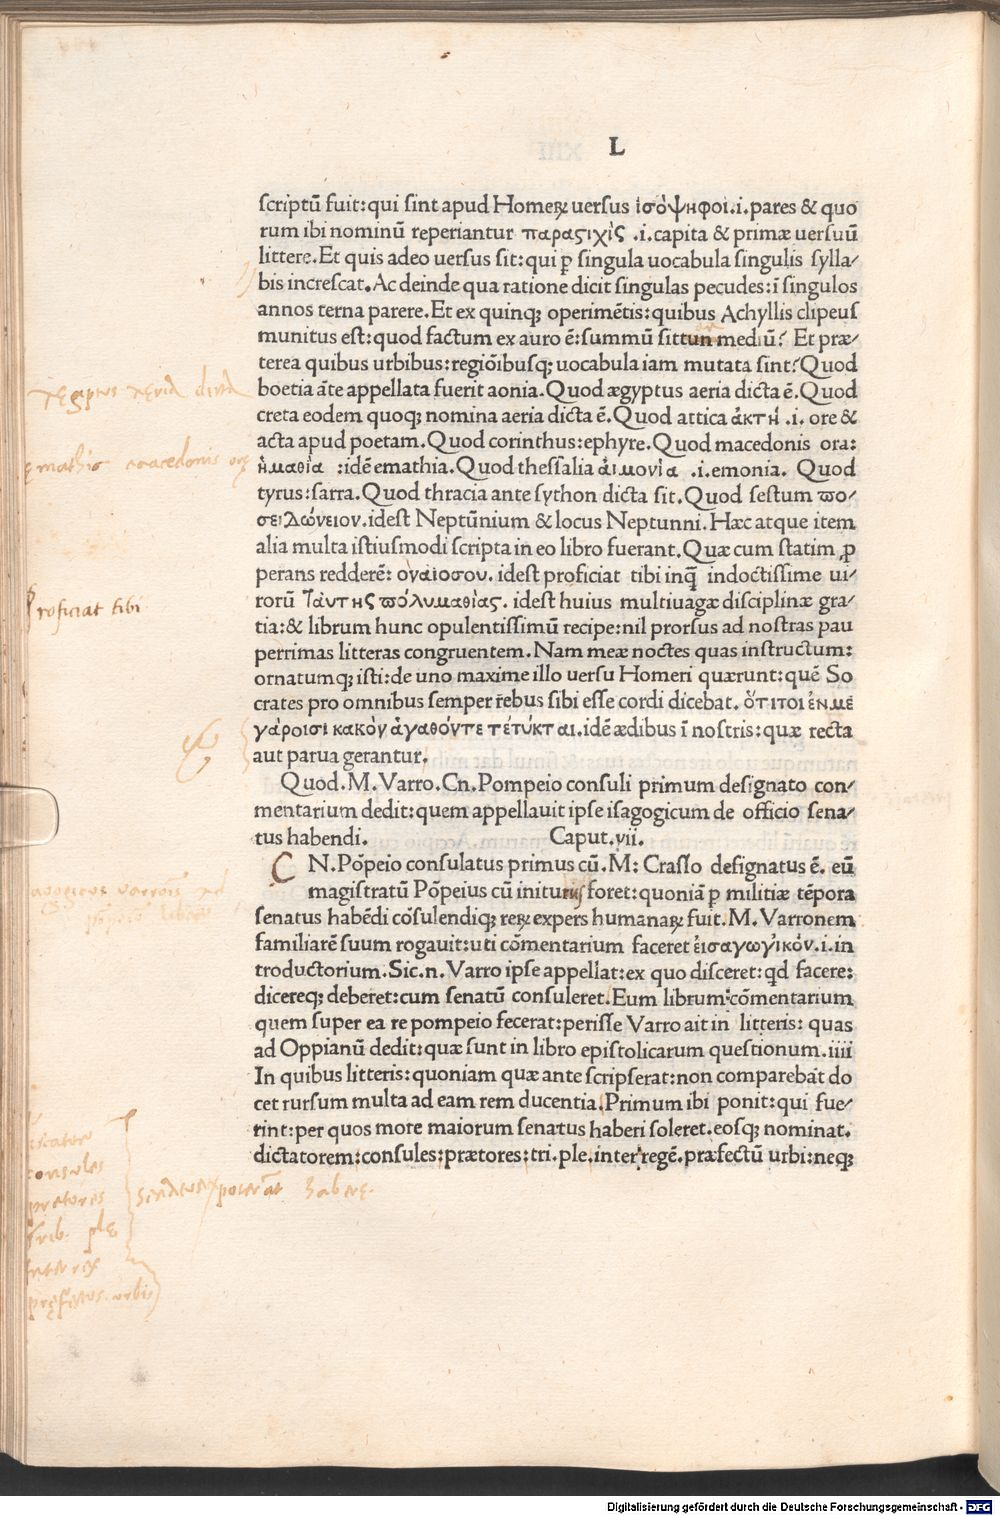 L
scriptū fuit:qui sint apud Homeꝝ uersus ἰσόψηφοι.i.pares & quo
rum ibi nominū reperiantur παραϛιχὶς .i.capita & primæ uersuū
littere.Et quis adeo uersus sit:qui ꝑ singula uocabula singulis sylla/
bis increscat.Ac deinde qua ratione dicit singulas pecudes:ī singulos
annos terna parere.Et ex quinqꝫ operimētis:quibus Achyllis clipeus
munitus est:quod factum ex auro ē:summū sit mediū? Et præ/
terea quibus urbibus:regiōibusqꝫ uocabula iam mutata sint?Quod
boetia āte appellata fuerit aonia.Quod ægyptus aeria dicta ē.Quod
creta eodem quoqꝫ nomina aeria dicta ē.Quod attica ἀκτὴ .i. ore &
acta apud poetam.Quod corinthus:ephyre.Quod macedonis ora:
ἠμαθία :idē emathia.Quod thessalia ἁιμονὶα .i.emonia. Quod
tyrus:sarra.Quod thracia ante sython dicta sit.Quod sestum ϖο/
σειλώνειον.idest Neptūnium & locus Neptunni.Hæc atque item
alia multa istiusmodi scripta in eo libro fuerant.Quæ cum statim ꝓ
perans redderē: οναιοσου. idest proficiat tibi inq̄ indoctissime ui/
rorū Ταυτης ϖολυμαθίας. idest huius multiuagæ disciplinæ gra/
tia:& librum hunc opulentissimū recipe:nil prorsus ad nostras pau
perrimas litteras congruentem.Nam meæ noctes quas instructum:
ornatumqꝫ isti:de uno maxime illo uersu Homeri quærunt:quē So
crates pro omnibus semper rebus sibi esse cordi dicebat. ὅτιτοι ἐνμέ
γάροισι κακὸν ἀγαθόντε τέτυκται.idē ædibus ī nostris:quæ recta
aut parua gerantur.
Quod.M.Varro.Cn.Pompeio consuli primum designato con/
mentarium dedit:quem appellauit ipse isagogicum de officio sena/
tus habendi. Caput.vii.
C N.Pōpeio consulatus primus cū.M: Crasso designatus ē. eū
magistratū Pōpeius cū foret:quoniā ꝑ militiæ tēpora
senatus habēdi cōsulendiqꝫ reꝝ expers humanaꝝ fuit.M.Varronem
familiarē suum rogauit:uti cōmentarium faceret ἐισαγωγικόν.i.in
troductorium.Sic.n.Varro ipse appellat:ex quo disceret:qđ facere:
dicereqꝫ deberet:cum senatū consuleret.Eum librum:cōmentarium
quem super ea re pompeio fecerat:perisse Varro ait in litteris: quas
ad Oppianū dedit:quæ sunt in libro epistolicarum questionum.iiii
In quibus litteris:quoniam quæ ante scripserat:non comparebāt do
cet rursum multa ad eam rem ducentia.Primum ibi ponit:qui fue/
rint:per quos more maiorum senatus haberi soleret.eosqꝫ nominat.
dictatorem:consules:prætores:tri.ple.interregē.præfectū urbi:neqꝫ
Ægiptus aeria dicta
Proficiat tibi
consules
pretores
trib. plę
inter rex
pręfectus.urbis
Senatus poterāt haberę.
Digitalisierung gefördert durch die Deutsche Forschungsgemeinschaft - DFG